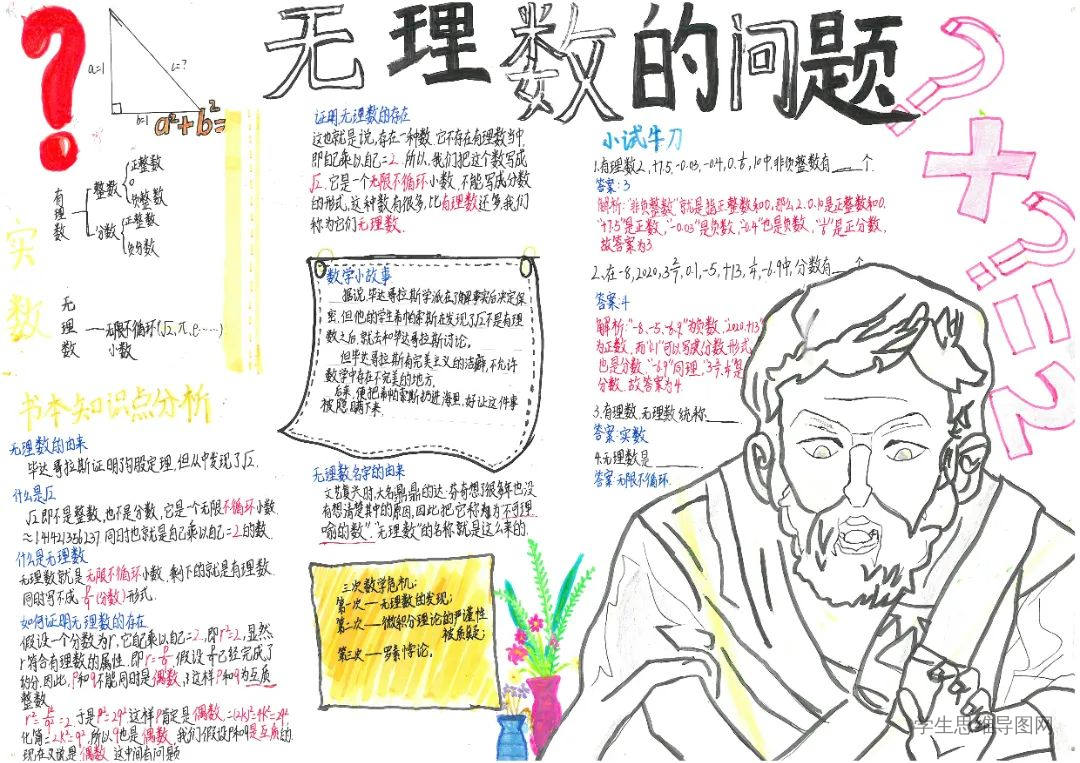 无理数的问题
a=1
c=?
b=1
a²+b²=
有理数
整数
正整数
0
负整数
分数
正分数
负分数
实数
无理数
无限不循环(√2,π,e……)
小数
书本知识点分析
无理数的由来
毕达哥拉斯证明了勾股定理,但从中发现了√2.
什么是√2
√2即不是整数,也不是分数,它是一个无限不循环小数
≈1.41421356237 同时也就是自己乘以自己=2的数.
什么是无理数
无理数就是无限不循环小数,剩下的就是有理数.
同时写不成 (分数)形式.
如何证明无理数的存在
假设一个分数为r,它自己乘以自己=2,即r²=2,显然,
r符合有理数的属性,即
假设 已经完成了
约分.因此,P和q不能同时是偶数,
这样P和q为互质
整数
于是P²=2q² 这样P肯定是偶数
化简=2k²=q²,所以q也是偶数,我们假设P和q是互质的
现在又说是偶数,这中间有问题
证明无理数的存在
这也就是说,存在一种数,它不存在有理数当中,
即自己乘以自己=2.所以,我们把这个数写成
√2,它是一个无限不循环小数,不能写成分数
的形式,这种数有很多,比有理数还多,我们
称为它们无理数.
数学小故事
据说,毕达哥拉斯学派在了解事实后决定保
密.但他的学生希帕索斯在发现了√2不是有理
数之后,就去和毕达哥拉斯讨论。
但毕达哥拉斯有完美主义的洁癖,不允许
数学中存在不完美的地方.
后来,便把希帕索斯扔进海里,好让这件事
被隐瞒下来.
无理数名字的由来
文艺复兴时,大名鼎鼎的达·芬奇想了很多年也没
有想清楚其中的原因,因此把它称为"不可理
喻的数"."无理数"的名称就是这么来的.
三次数学危机:
第一次——无理数的发现;
第二次——微积分理论的严谨性
被质疑;
第三次——罗素悖论。
小试牛刀
1.有理数2,+7.5,-0.03,-0.4,0, ,10中,非负整数有___个.
答案:3
解析:"非负整数"就是指正整数和0,那么2.0.10是正整数和0.
"+7.5"是正数,"-0.03"是负数,"-0.4"也是负数, 是正分数,
故答案为3
2.在-8,2020, ,0.1,-5,+13, ,-6.9中,分数有___个.
答案:4
解析:"-8,-5,-6.9"为负数,"2020,+13"
为正数,而"0.1"可以写成分数形式,
也是分数,"-6.9"同理, 是
分数,故答案为4
3.有理数,无理数统称____
答案:实数
4.无理数是_____
答案:无限不循环.
学生思维导图网